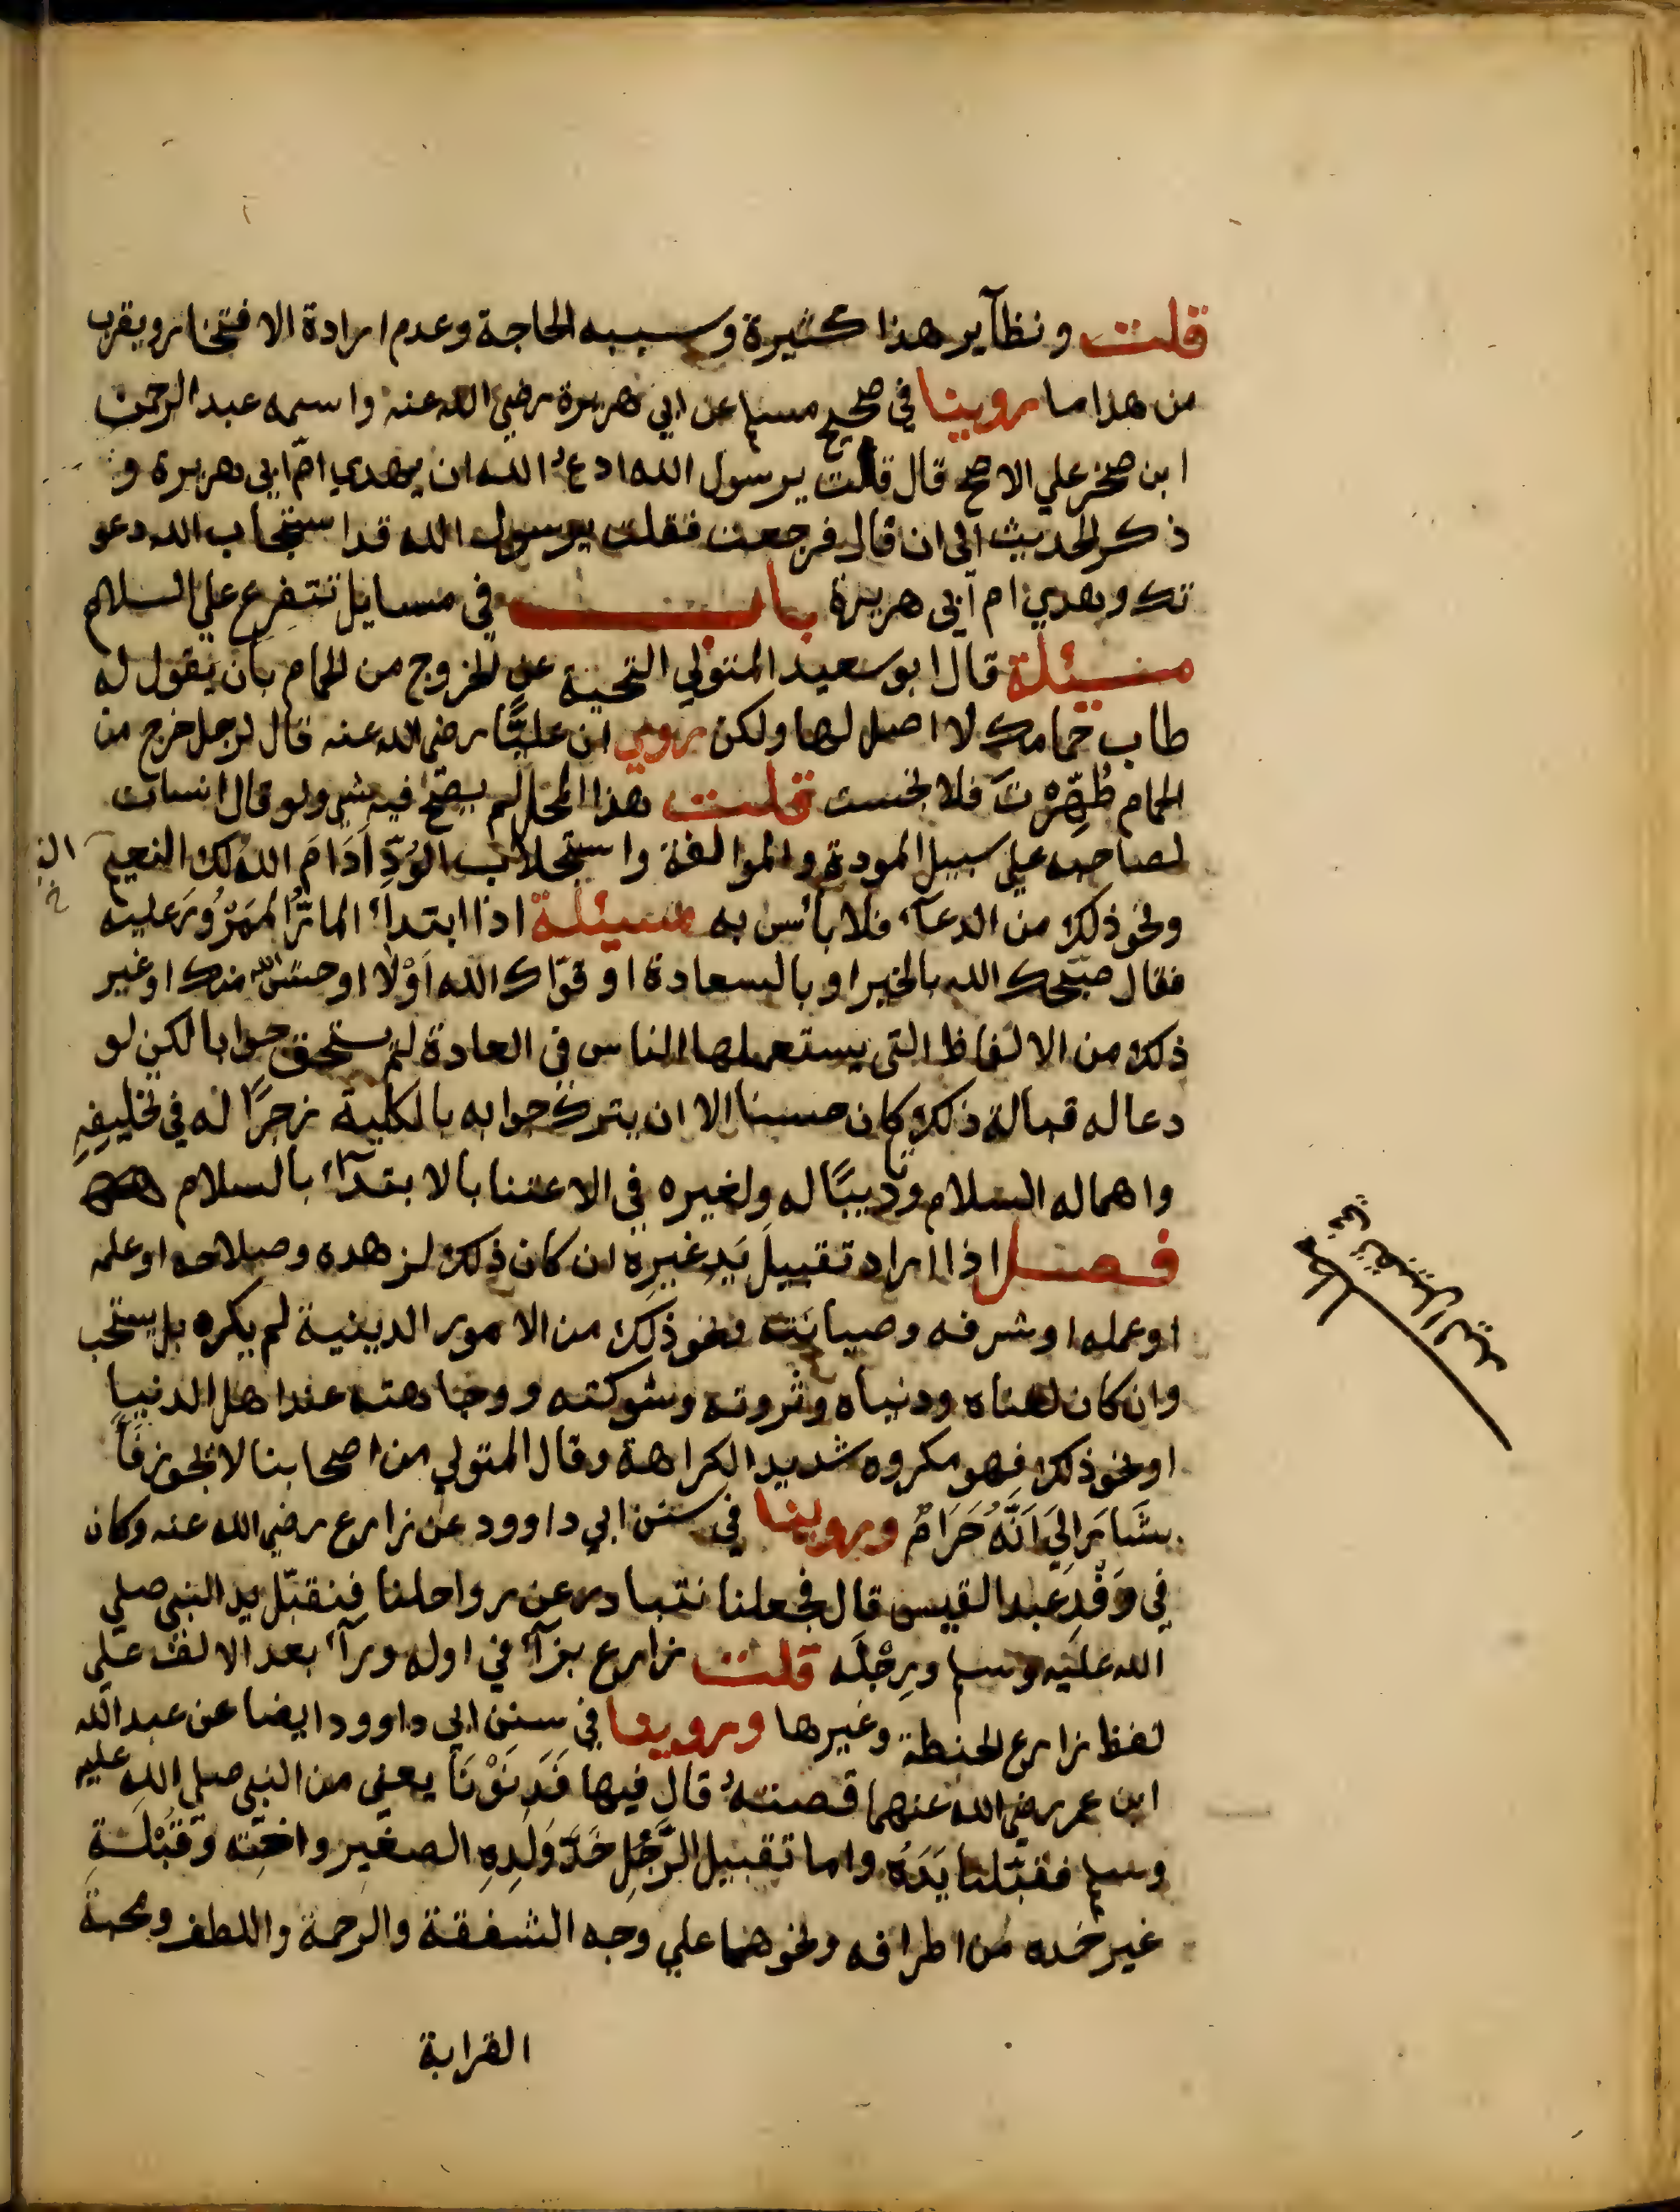 قلت ونظآير هذا كثيرة وسببه الحاجة وعدم ارادة الافتخار ويقرب
من هذا ما روينا في صحيح مسلم عن ابي هريرة رضي الله عنه واسمه عبد الرحمن
ابن صخر علي الاصح قال قلت يرسول الله ادعُ الله ان يهدي امّ ابي هريرة و
ذكر الحديث الى ان قال فرجعت فقلت يرسول الله قد استجاب الله دعو
تك وهدي ام ابي هريرة باب في مسايل تتفرع علي السلام
مسئلة قال ابو سعيد المتولي التحية عن الخروج من الحمام بان يقول له
طاب حمامك لا اصل لها ولكن روي ان عليًّا رضي الله عنه قال لرجل خرج من
الحمام طُهِّرْتَ فلا نجست قلت هذا المحل لم يصح فيه شي ولو قال انسان
لصاحبه علي سبيل المودة والموالفة واستجلاب الوُدِّ اَدَامَ الله لك النعيم
ونحو ذلك من الدعآء فلا بأس به مسئلة اذا ابتداء المارُّ المَمْرُورَ عليه
فقال صبّحك الله بالخير او بالسعادة او قوّاك الله اَوْلا اوحش الله منك او غير
ذلك من الالفاظ التي يستعملها الناس في العادة لم يستحق جوابا لكن لو
دعا له قبالة ذلك كان حسنا الا ان يترك جوابه بالكلية زجرًا له في تخليفِهِ
واهماله السلام وتاديبًا له ولغيره في الاعتنا بالابتدآء بالسلام
فصل اذا اراد تقبيل يَدِ غيرِه ان كان ذلك لزهده وصلاحه او علمه
او عمله او شرفه وصيانته ونحو ذلك من الامور الدينية لم يكره بل يستحب
وان كان لغناه ودنياه وثروته وشوكته ووجاهته عند اهل الدنيا
او نحو ذلك فهو مكروه شديد الكراهة وقال المتولي من اصحابنا لا يجوز فَاَ
شَارَ اِلَي اَنَّهُ حَرَامٌ وروينا في سنن ابي داوود عن زارع رضي الله عنه وكان
في وَفْدِ عبد القيس قال فجعلنا نتبادر عن رواحلنا فنقبّل يد النبي صلي
الله عليه وسلم ورِجْلَه قلت زارع بزآء في اوله ورآء بعد الالف علي
لفظ زارع الحنطة وغيرها وروينا في سنن ابي داوود ايضا عن عبد الله
ابن عمر رضي الله عنهما قصتهُ قال فيها فَدَنَوْنَا يعني من النبي صلي الله عليه
وسلم فقبّلنا يَدَهُ واما تقبيل الرَّجُلِ خَدَّ وَلَدِهِ الصغير واخيه وقُبْلَةِ
غير خده من اطرافه ونحوهما علي وجه الشفقة والرحمة واللطف ومحبة
القرابة